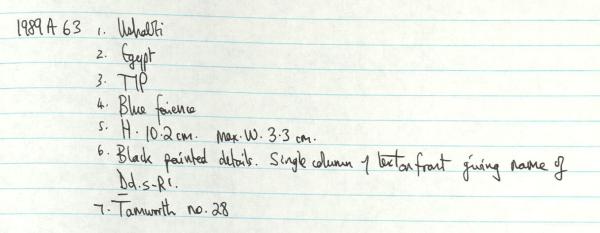 1989 A 63 1. Ushabti
2. Egypt
3. TIP
4. Blue faience
5. H. 10.2 cm. Max. W. 3.3 cm.
6. Black painted details. Single column of text on front giving name of
Dd.s-Rʿ.
7. Tamworth no. 28